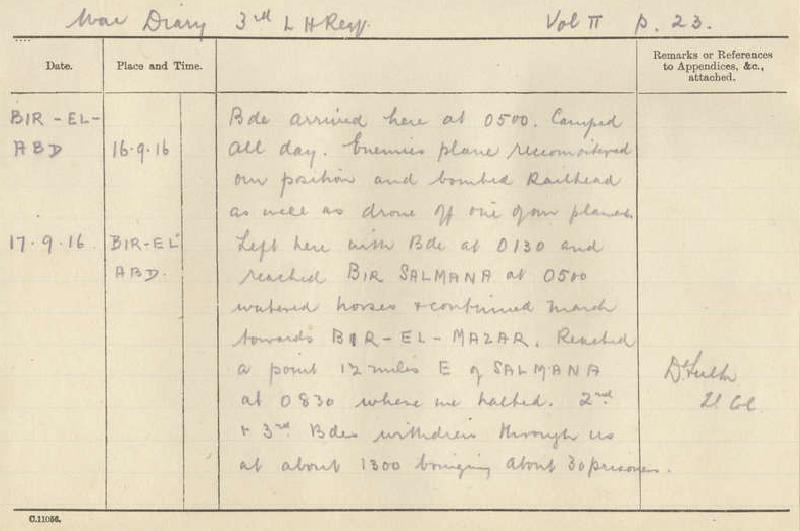 War Diary 3rd L H Regt. Vol II p. 23.
Date.
Place and Time.
Remarks or References
to Appendices, &c.,
attached.
BIR - EL -
ABD 16.9.16
Bde arrived here at 0500. Camped
all day. Enemies plane reconnoitered
our position and bombed Railhead
as well as drove off one of our planes
17.9.16 BIR-EL
ABD.
Left here with Bde at 0130 and
reached BIR SALMANA at 0500
watered horses & continued march
towards BIR - EL - MAZAR. Reached
a point 12 miles E of SALMANA
at 0830 where we halted. 2nd
& 3rd Bdes withdrew through us
at about 1300 bringing about 30 prisoners.
Lt Col
C.11056.